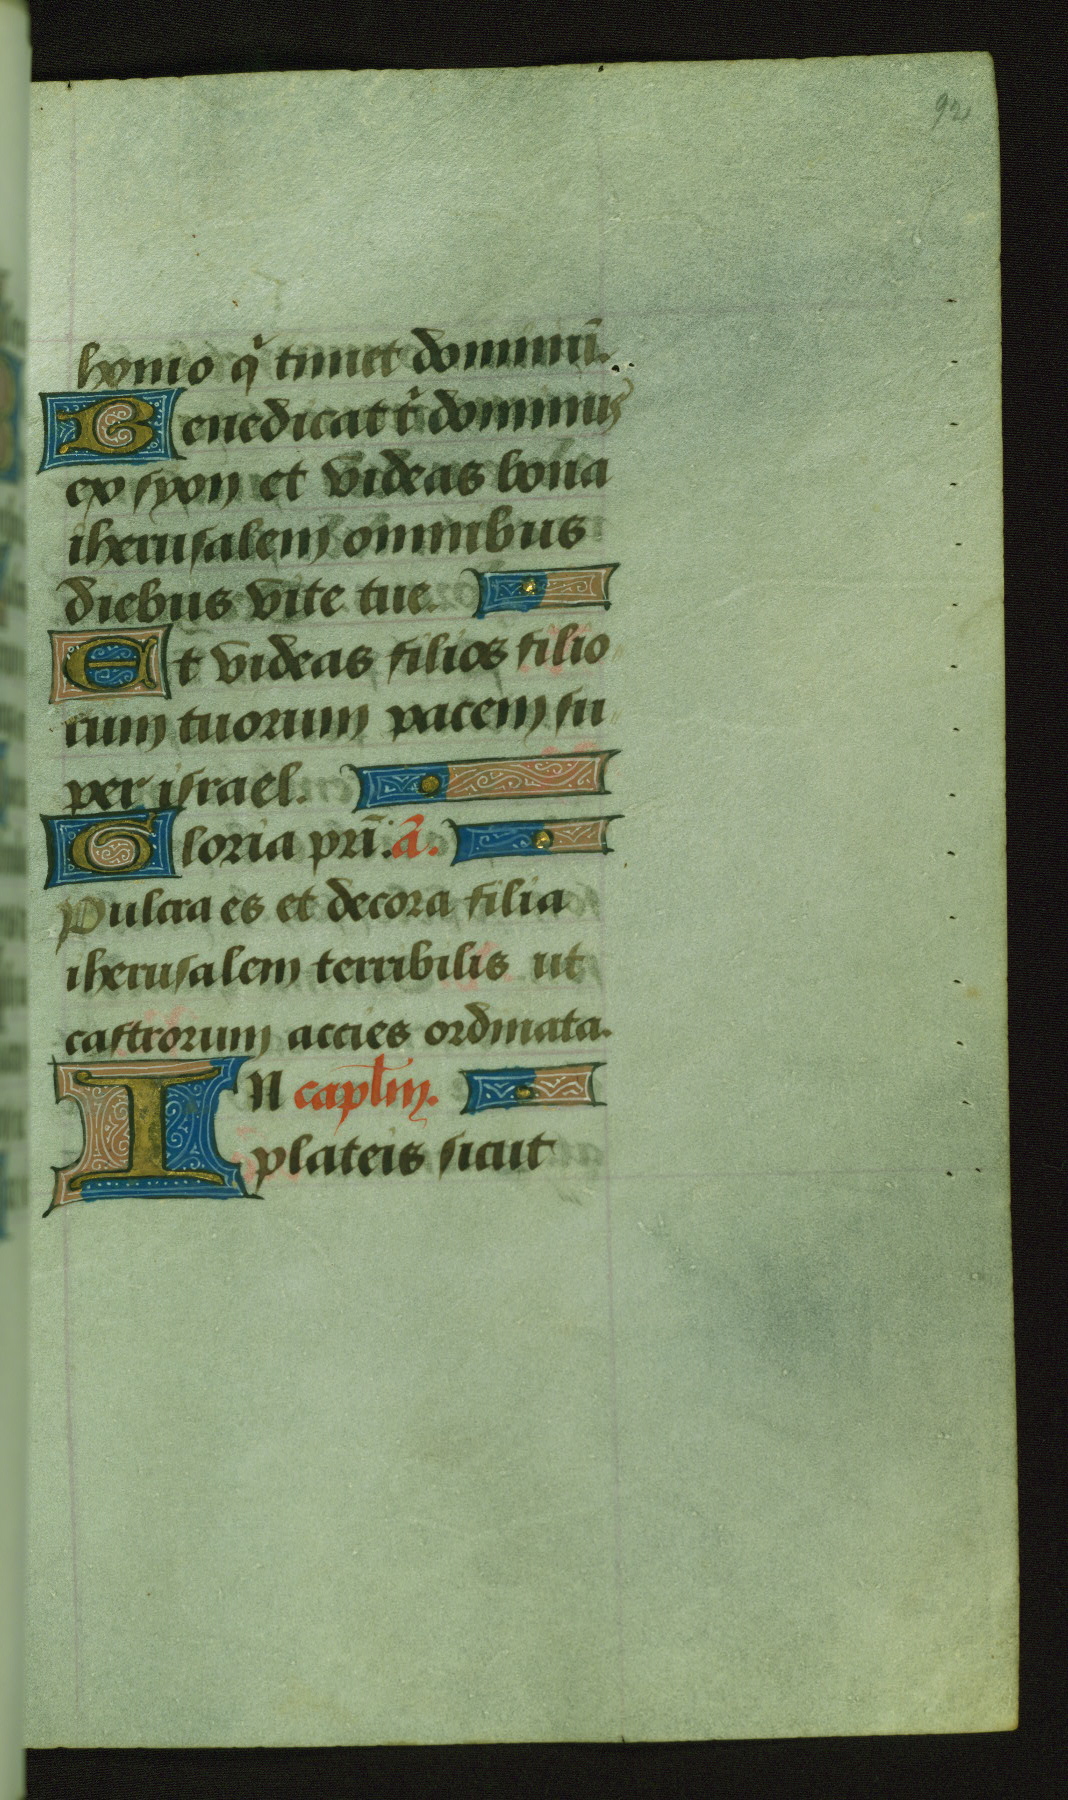 92
homo qͥ timet dominū.
Benedicat tͥ dominus
ex syon et videas bona
iherusalem omnibus
diebus vite tue.
Et videas filios filio
rum tuorum pacem su
per israel.
Gloria pr̄i. ā.
Pulcra es et decora filia
iherusalem terribilis ut
castrorum accies ordinata.
IN capl̄m.
plateis sicut